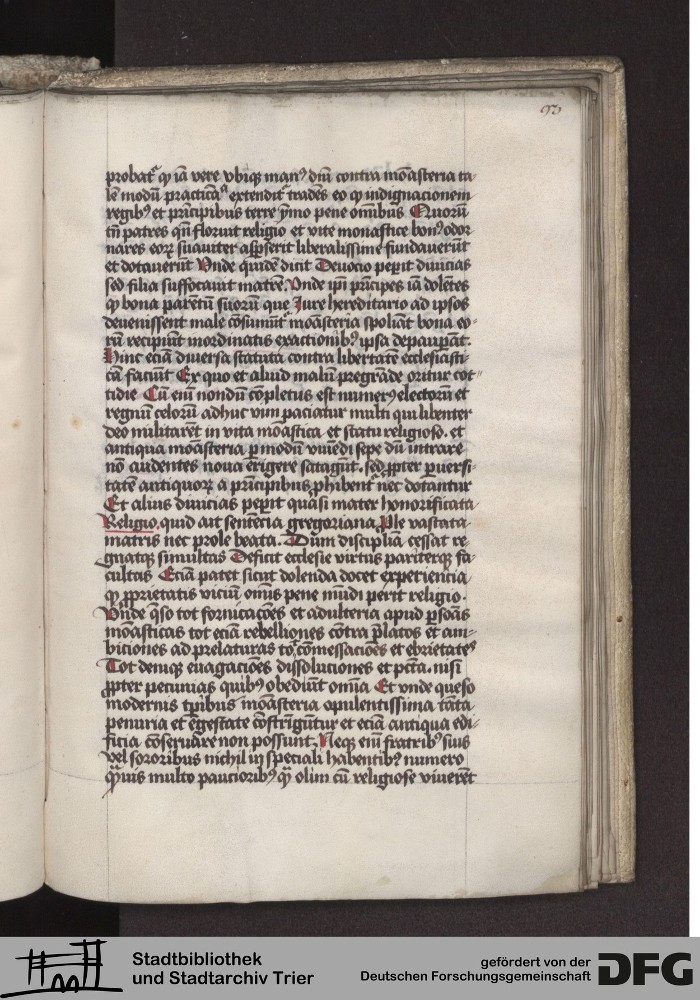 93
probatᷓ ꝙ iā vere vbiqꝫ manꝰ dn̄i contra mōasteria ta
lē modū practicā extenditᷓ tradēs eo ꝙ indignacionem
regibꝰ et prīcipibus terre ymo pene om̄ibus Quorū
tn̄ patres qn̄ floruit religio et vite monastice bonꝰ odor
nares eoꝝ suauiter asꝑserit liberalissime fundauerūt
et dotauerūt Vnde quidē dicit Deuocio peperit diuicias
sed filia suffocauit matrē. Vnde ipī prīcipes iā dolētes
ꝙ bona parētū suorū que Jure hereditario ad ipsos
deuenissent male cōsumūtᷓ mōasteria spoliāt bona eo-
rū recipiūt inordinatis exactionibꝰ ipsa depauꝑāt.
Hinc eciā diuersa statuta contra libertatē ecclesiasti
cā faciūt Ex quo et aliud malū pregrāde oritur cot
tidie Cū eiū nondū cōpletus est numerꝰ electorū et
regnū celorū adhuc vim paciatur multi qui libenter
deo militarēt in vita mōastica et statu religioso. et
antiqua mōasteria ꝑ modū viuēdi sepe dn̄ intrare
nō audentes noua erigere satagūt. sed ꝓpter ꝑuersi-
tatē antiquoꝝ a prīcipibus ꝓhibentᷓ nec dotantur
Et alius diuicias peperit quasi mater honorificata
Religio. quid ait sentēcia gregoriana Ple vastata
matris nec prole beata. Dum disciplīa cessat re
gnatqꝫ simultas Deficit ecclesie virtus pariterqꝫ fa
cultas Eciā patet sicut dolenda docet experiencia
ꝙ ꝓprietatis viciū om̄is pene mūdi perit religio.
Vnde q̄so tot fornicacōes et adulteria apud ꝑsōas
mōasticas tot eciā rebelliones cōtra p̄latos et am-
biciones ad prelaturas tot cōmessacōes et ebrietates
Tot deniqꝫ euagacōes dissoluciones et pctā. nisi
ꝓpter pecunias quibꝰ obediūt om̄ia Et vnde queso
modernis tp̄ibus mōasteria opulentissima tāta
penuria et egestate cōstrīgūtur et eciā antiqua edi-
ficia cōseruāre non possunt. Neqꝫ eiū fratribꝰ suis
vel sororibus nichil in speciali habentibꝰ numero
q̄muis multo paucioribꝰ qᷓ olim cū religiose viuerēt
Stadtbibliothek
und Stadtarchiv Trier
gefördert von der
Deutschen Forschungsgemeinschaft
DFG